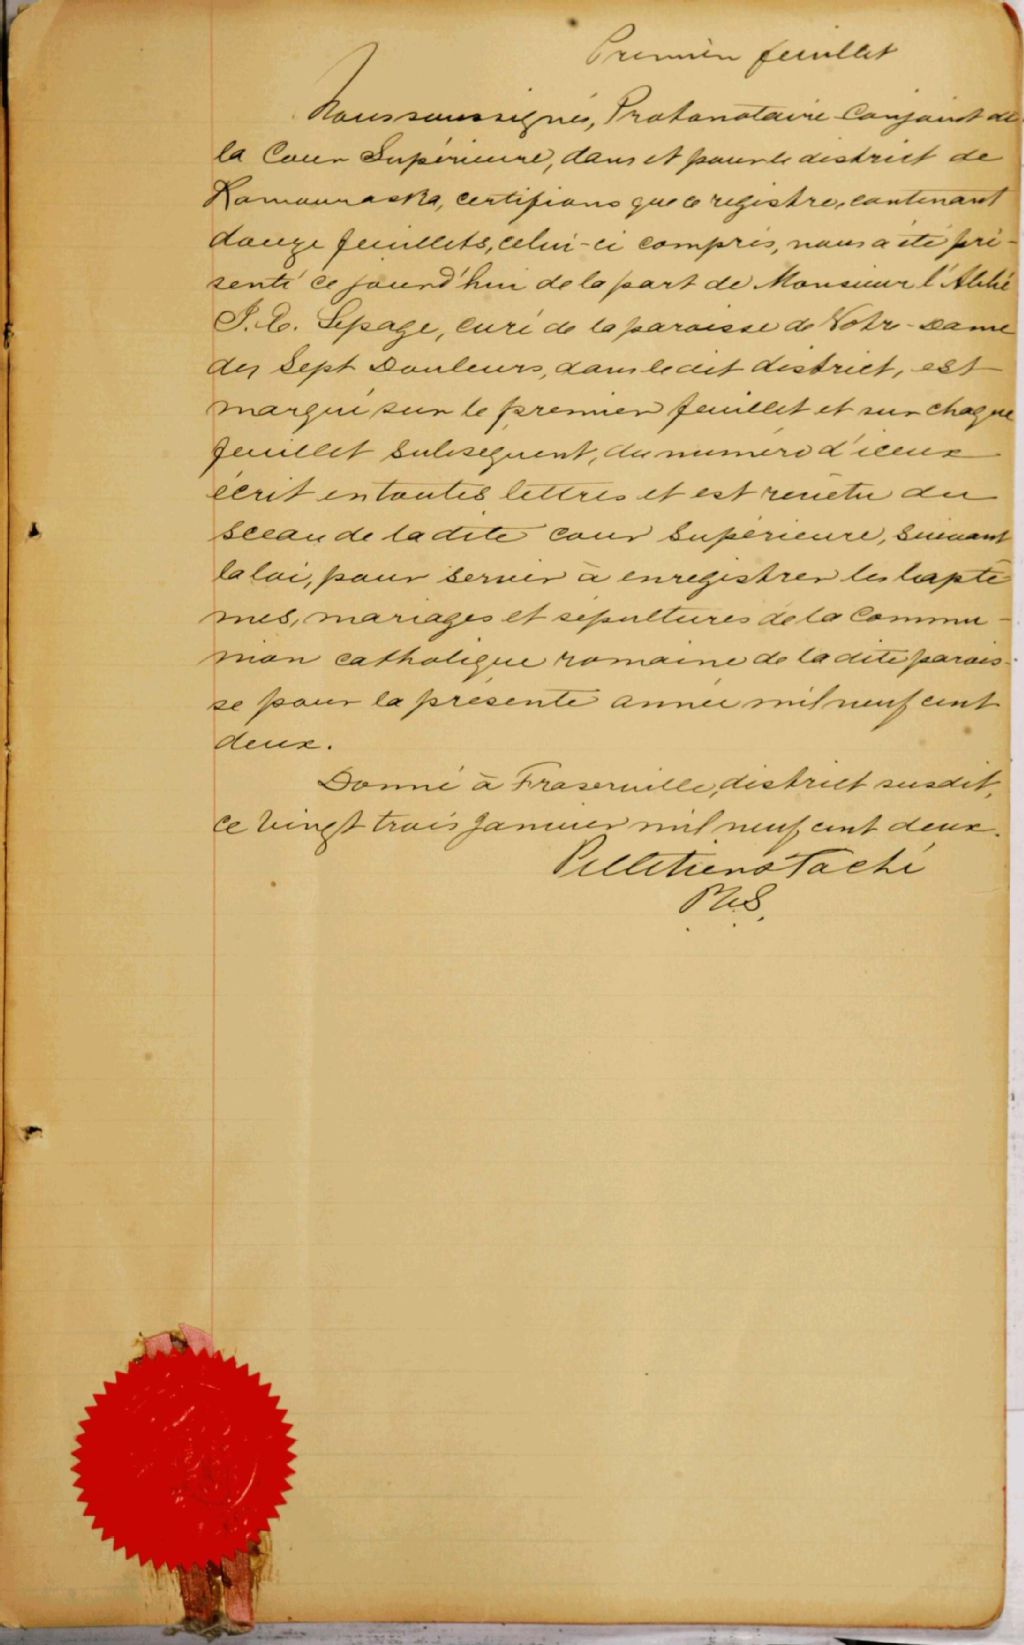 Premier feuillet
Nous soussignés, Protonotaire Conjoint de
la Cour Supérieure, dans et pour le district de
Kamouraska, certifions que ce registre, contenant
douze feuillets, celui-ci compris, nous a été pré-
senté ce jourd'hui de la part de Monsieur l'Abbé
J. C. Lepage, curé de la paroisse de Notre-Dame
des Sept Douleurs, dans le dit district, est
marqué sur le premier feuillet et sur chaque
feuillet subséquent, du numéro d'iceux
écrit en toutes lettres et est revêtu du
sceau de la dite Cour Supérieure, suivant
la loi, pour servir à enregistrer les baptê
mes, mariages et sépultures de la Commu-
nion catholique romaine de la dite parois-
se pour la présente année mil neuf cent
deux.
Donné à Fraserville, district susdit,
ce vingt trois janvier mil neuf cent deux.
Pelletier & Taché
P.C.S.